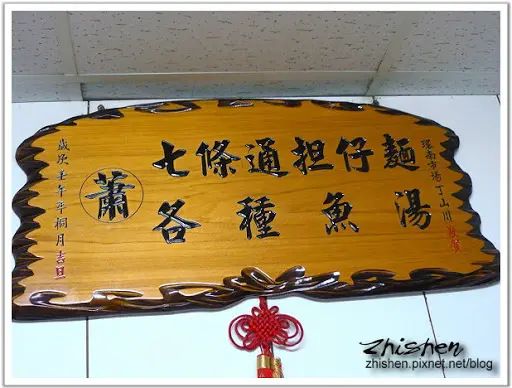 七條通担仔麵
各種魚湯
蕭
歲次壬午年桐月吉旦
環南市場丁山川敬賀
zhishen
zhishen.pixnet.net/blog